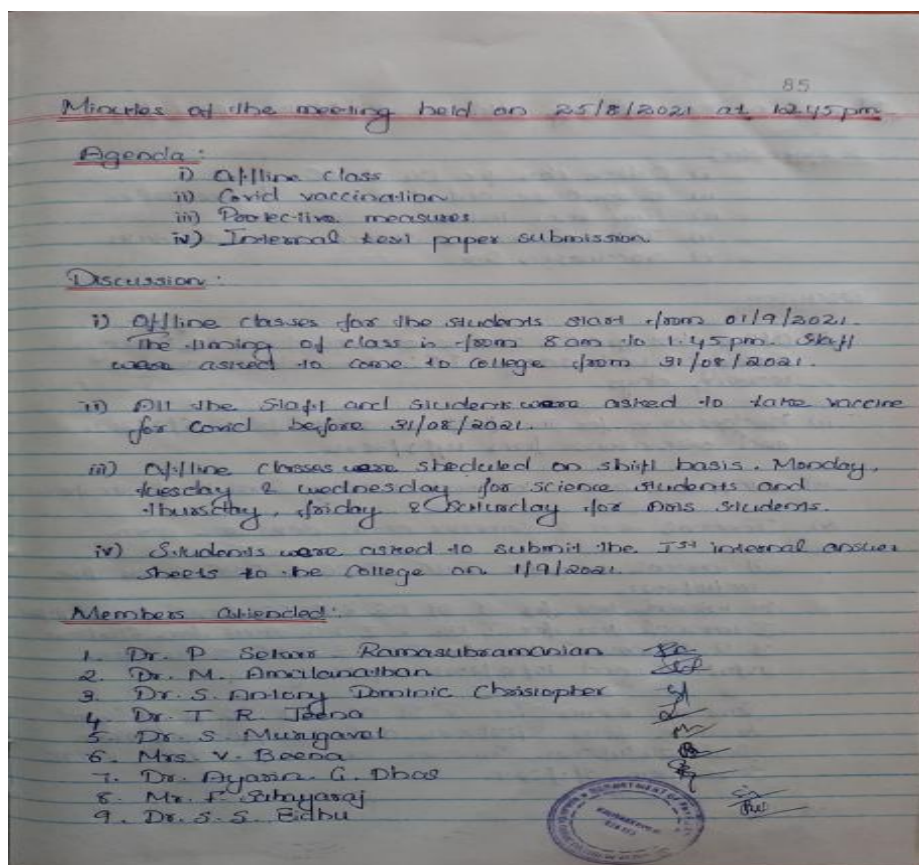 85
Minutes of the meeting held on 25/8/2021 at 12.45pm
Agenda:
i) Offline class
ii) Covid vaccination
iii) Protective measures
iv) Internal test paper submission
Discussion:
i) Offline classes for the students start from 01/9/2021.
The timing of class is from 8am to 1.45pm. Staff
were asked to come to college from 31/08/2021.
ii) All the Staff and students were asked to take vaccine
for Covid before 31/08/2021.
iii) Offline classes were sheduled on shift basis. Monday,
tuesday & wednesday for science students and
thursday, friday & Saturday for Arts students.
iv) Students were asked to submit the Ist internal answer
sheets to the College on 1/9/2021.
Members attended:
1. Dr. P Selvar Ramasubramanian
2. Dr. M. Amalanathan
3. Dr. S. Antony Dominic Christopher
4 Dr. T R. Jeena
5 Dr. S Murugavel
6. Mrs. V. Beena
7. Dr. Ayarin G. Dhas
8. Mr. F Sahayaraj
9. Dr. S. S.